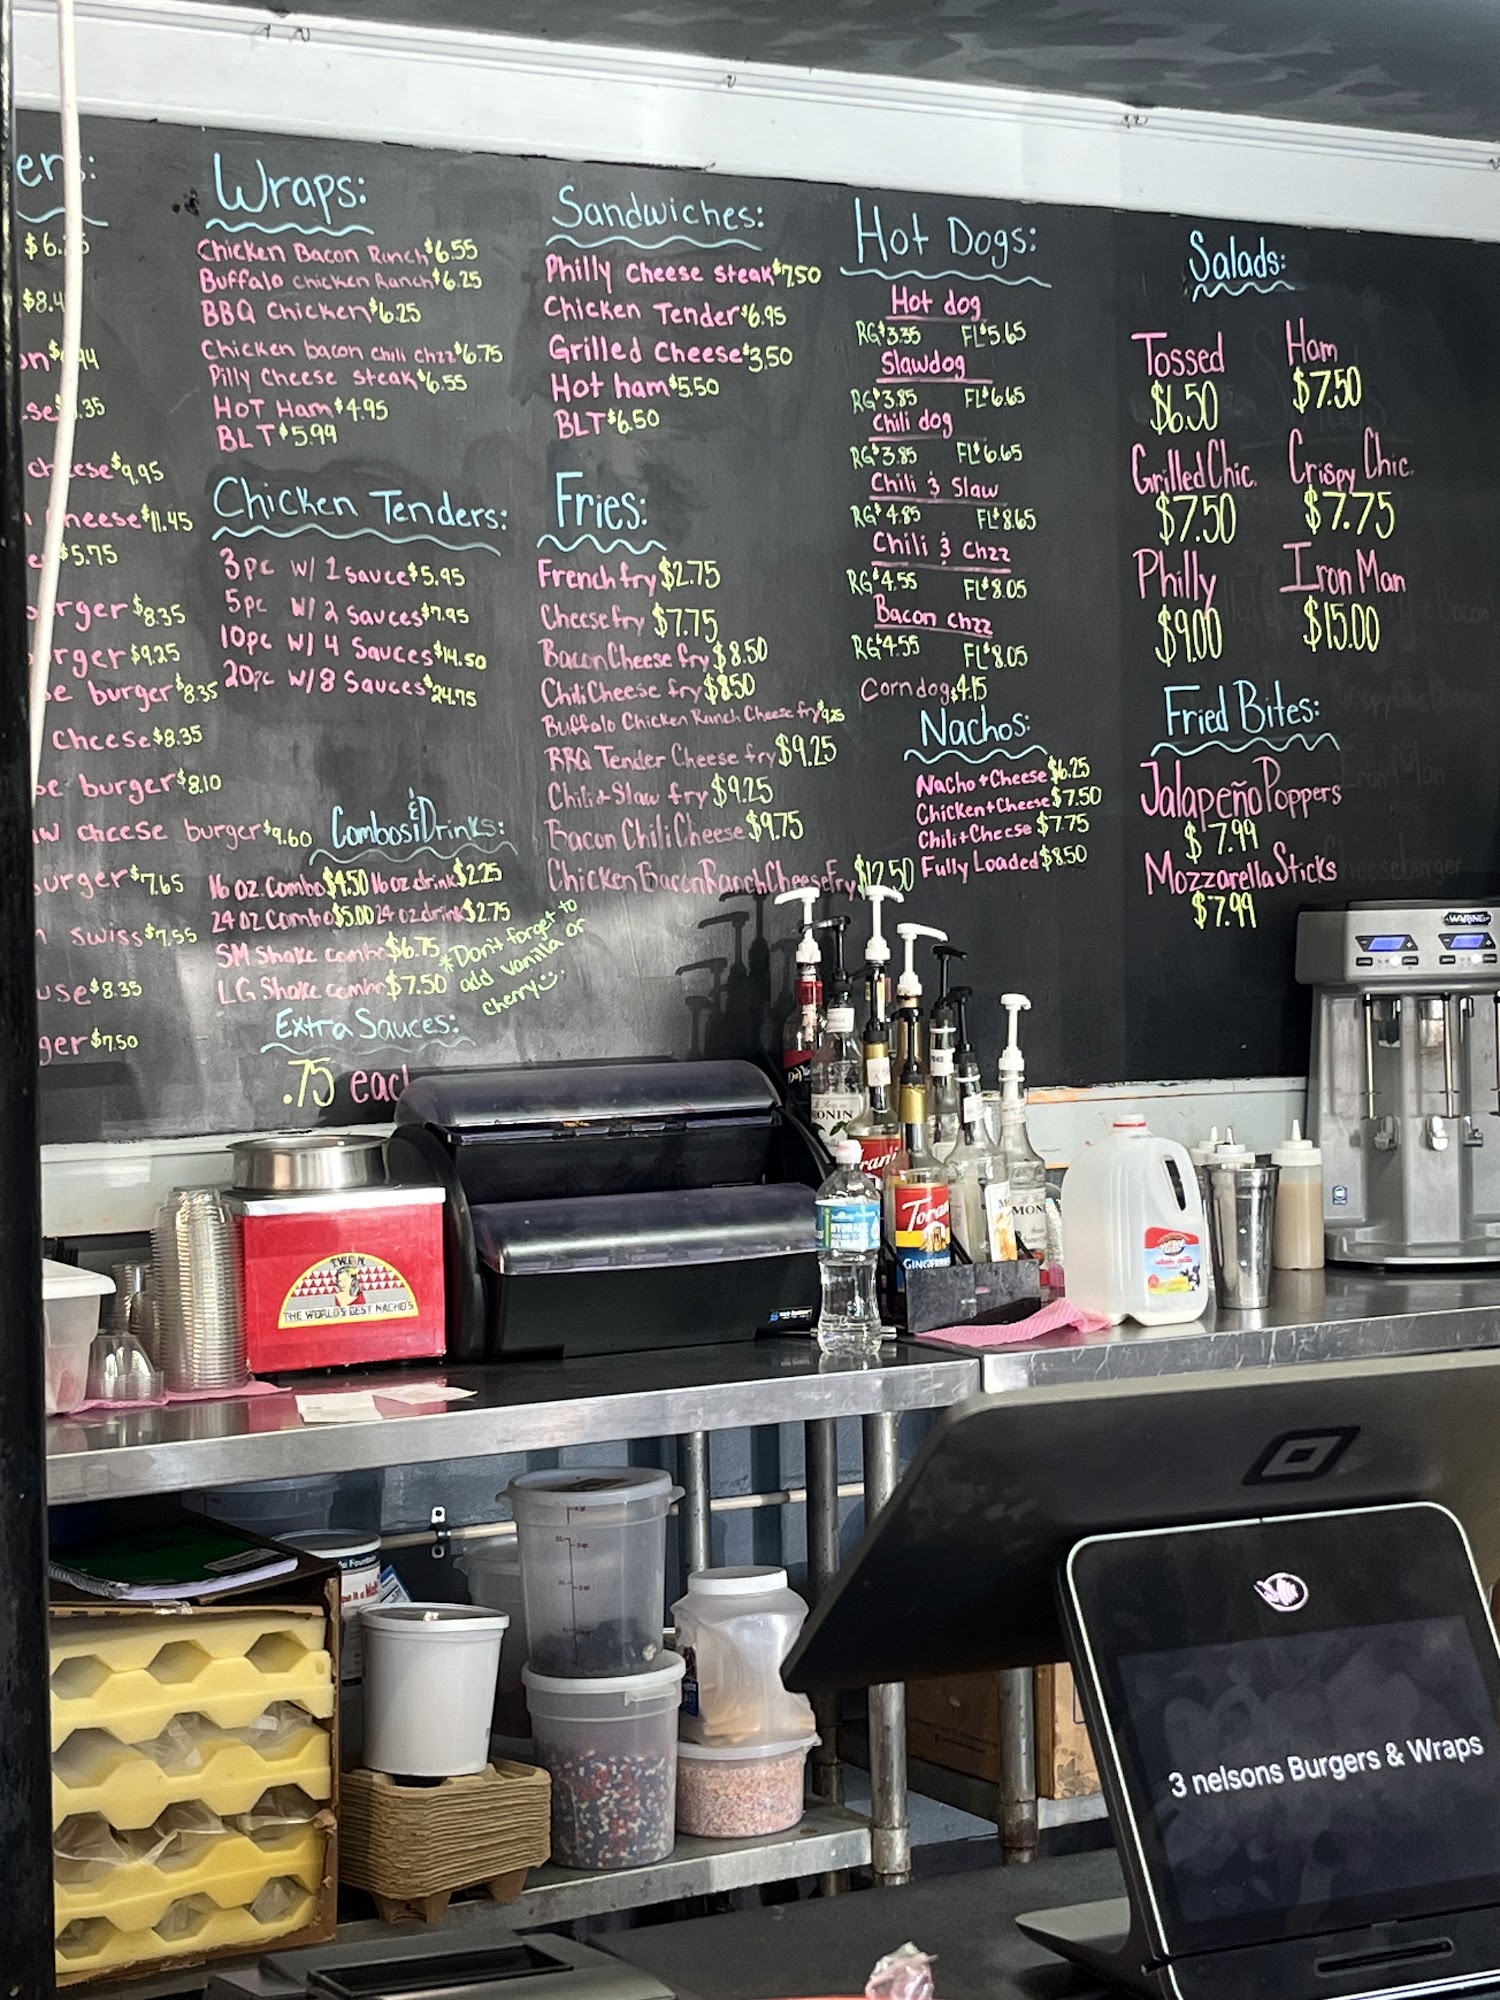 ers:
$8.4
$9.95
cheese $11.45
$5.75
burger $8.35
burger $9.25
burger $8.35
cheese $8.35
burger $8.10
cheese burger $9.60
burger $7.65
swiss $7.55
$8.35
$7.50
Wraps:
Chicken Bacon Ranch $6.55
Buffalo chicken Ranch $6.25
BBQ Chicken $6.25
Chicken bacon chili chzz $6.75
Pilly Cheese steak $6.55
HOT Ham $4.95
BLT $5.99
Chicken Tenders:
3pc w/ 1 sauce $5.95
5pc w/ 2 sauces $7.95
10pc w/ 4 Sauces $14.50
20pc w/ 8 Sauces $24.75
Combos & Drinks:
16 oz. Combo $4.50 16 oz. drink $2.25
24 oz Combo $5.00 24 oz drink $2.75
SM Shake combo $6.75
LG Shake combo $7.50
*Don't forget to
add vanilla or
cherry
Extra Sauces:
.75 each
Sandwiches:
Philly Cheese steak $7.50
Chicken Tender $6.95
Grilled Cheese $3.50
Hot ham $5.50
BLT $6.50
Fries:
French fry $2.75
Cheese fry $7.75
Bacon Cheese fry $8.50
Chili Cheese fry $8.50
Buffalo Chicken Ranch Cheese fry $9.25
BBQ Tender Cheese fry $9.25
Chili + Slaw fry $9.25
Bacon Chili Cheese $9.75
Chicken Bacon Ranch Cheese Fry $12.50
Hot Dogs:
Hot dog
RG $3.35 FL $5.65
Slawdog
RG $3.85 FL $6.65
Chili dog
RG $3.85 FL $6.65
Chili & Slaw
RG $4.85 FL $8.65
Chili & Chzz
RG $4.55 FL $8.05
Bacon chzz
RG $4.55 FL $8.05
Corndog $4.15
Nachos:
Nacho + Cheese $6.25
Chicken + Cheese $7.50
Chili + Cheese $7.75
Fully Loaded $8.50
Salads:
Tossed Ham
$6.50 $7.50
Grilled Chic. Crispy Chic.
$7.50 $7.75
Philly Iron Man
$9.00 $15.00
Fried Bites:
Jalapeño Poppers
$7.99
Mozzarella Sticks
$7.99
WARING
MONIN
Torani
GINGERBR
THE WORLD'S BEST NACHOS
3 nelsons Burgers & Wraps